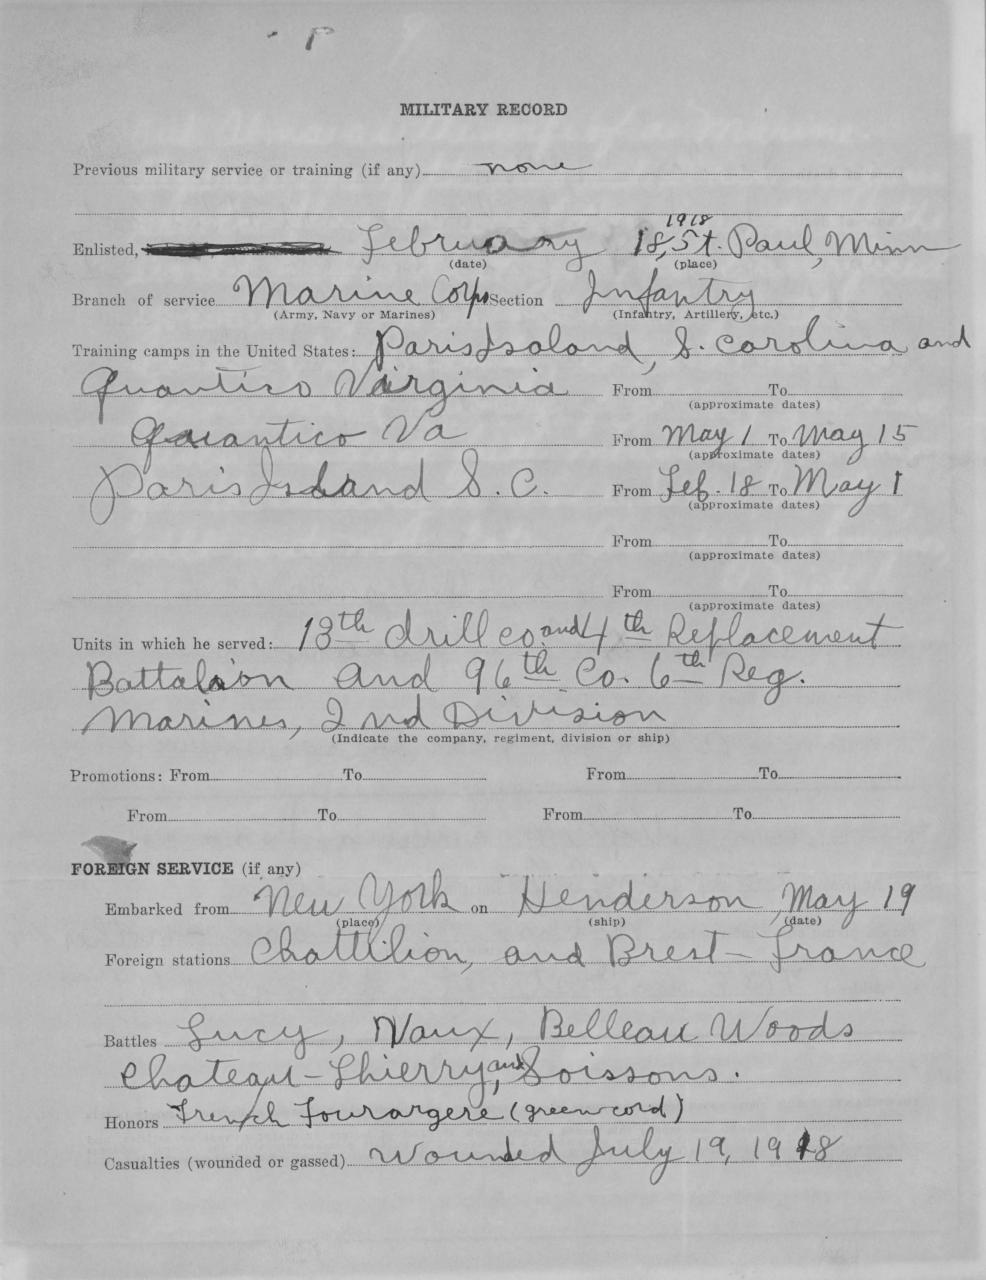 MILITARY RECORD
Previous military service or training (if any) none
1918
Enlisted, February 18, St. Paul, Minn
(date) (place)
Branch of service Marine Corps Section Infantry
(Army, Navy or Marines) (Infantry, Artillery, etc.)
Training camps in the United States: Paris Isoland, S. Carolina and
Quantico Virginia From To
(approximate dates)
Quantico Va From May 1 To May 15
(approximate dates)
Paris Island S. C. From Feb. 18 To May 1
(approximate dates)
From To
(approximate dates)
From To
(approximate dates)
Units in which he served: 13th drill co. and 4th Replacement
Battalion and 96th Co. 6th Reg.
Marines, 2nd Division
(Indicate the company, regiment, division or ship)
Promotions: From To From To
From To From To
FOREIGN SERVICE (if any)
Embarked from New York on Henderson May 19
(place) (ship) (date)
Foreign stations Chattilion, and Brest - France
Battles Lucy, Vaux, Belleau Woods
Chateau-Thierry, and Soissons.
Honors French Fourargere (green cord)
Casualties (wounded or gassed) Wounded July 19, 1918